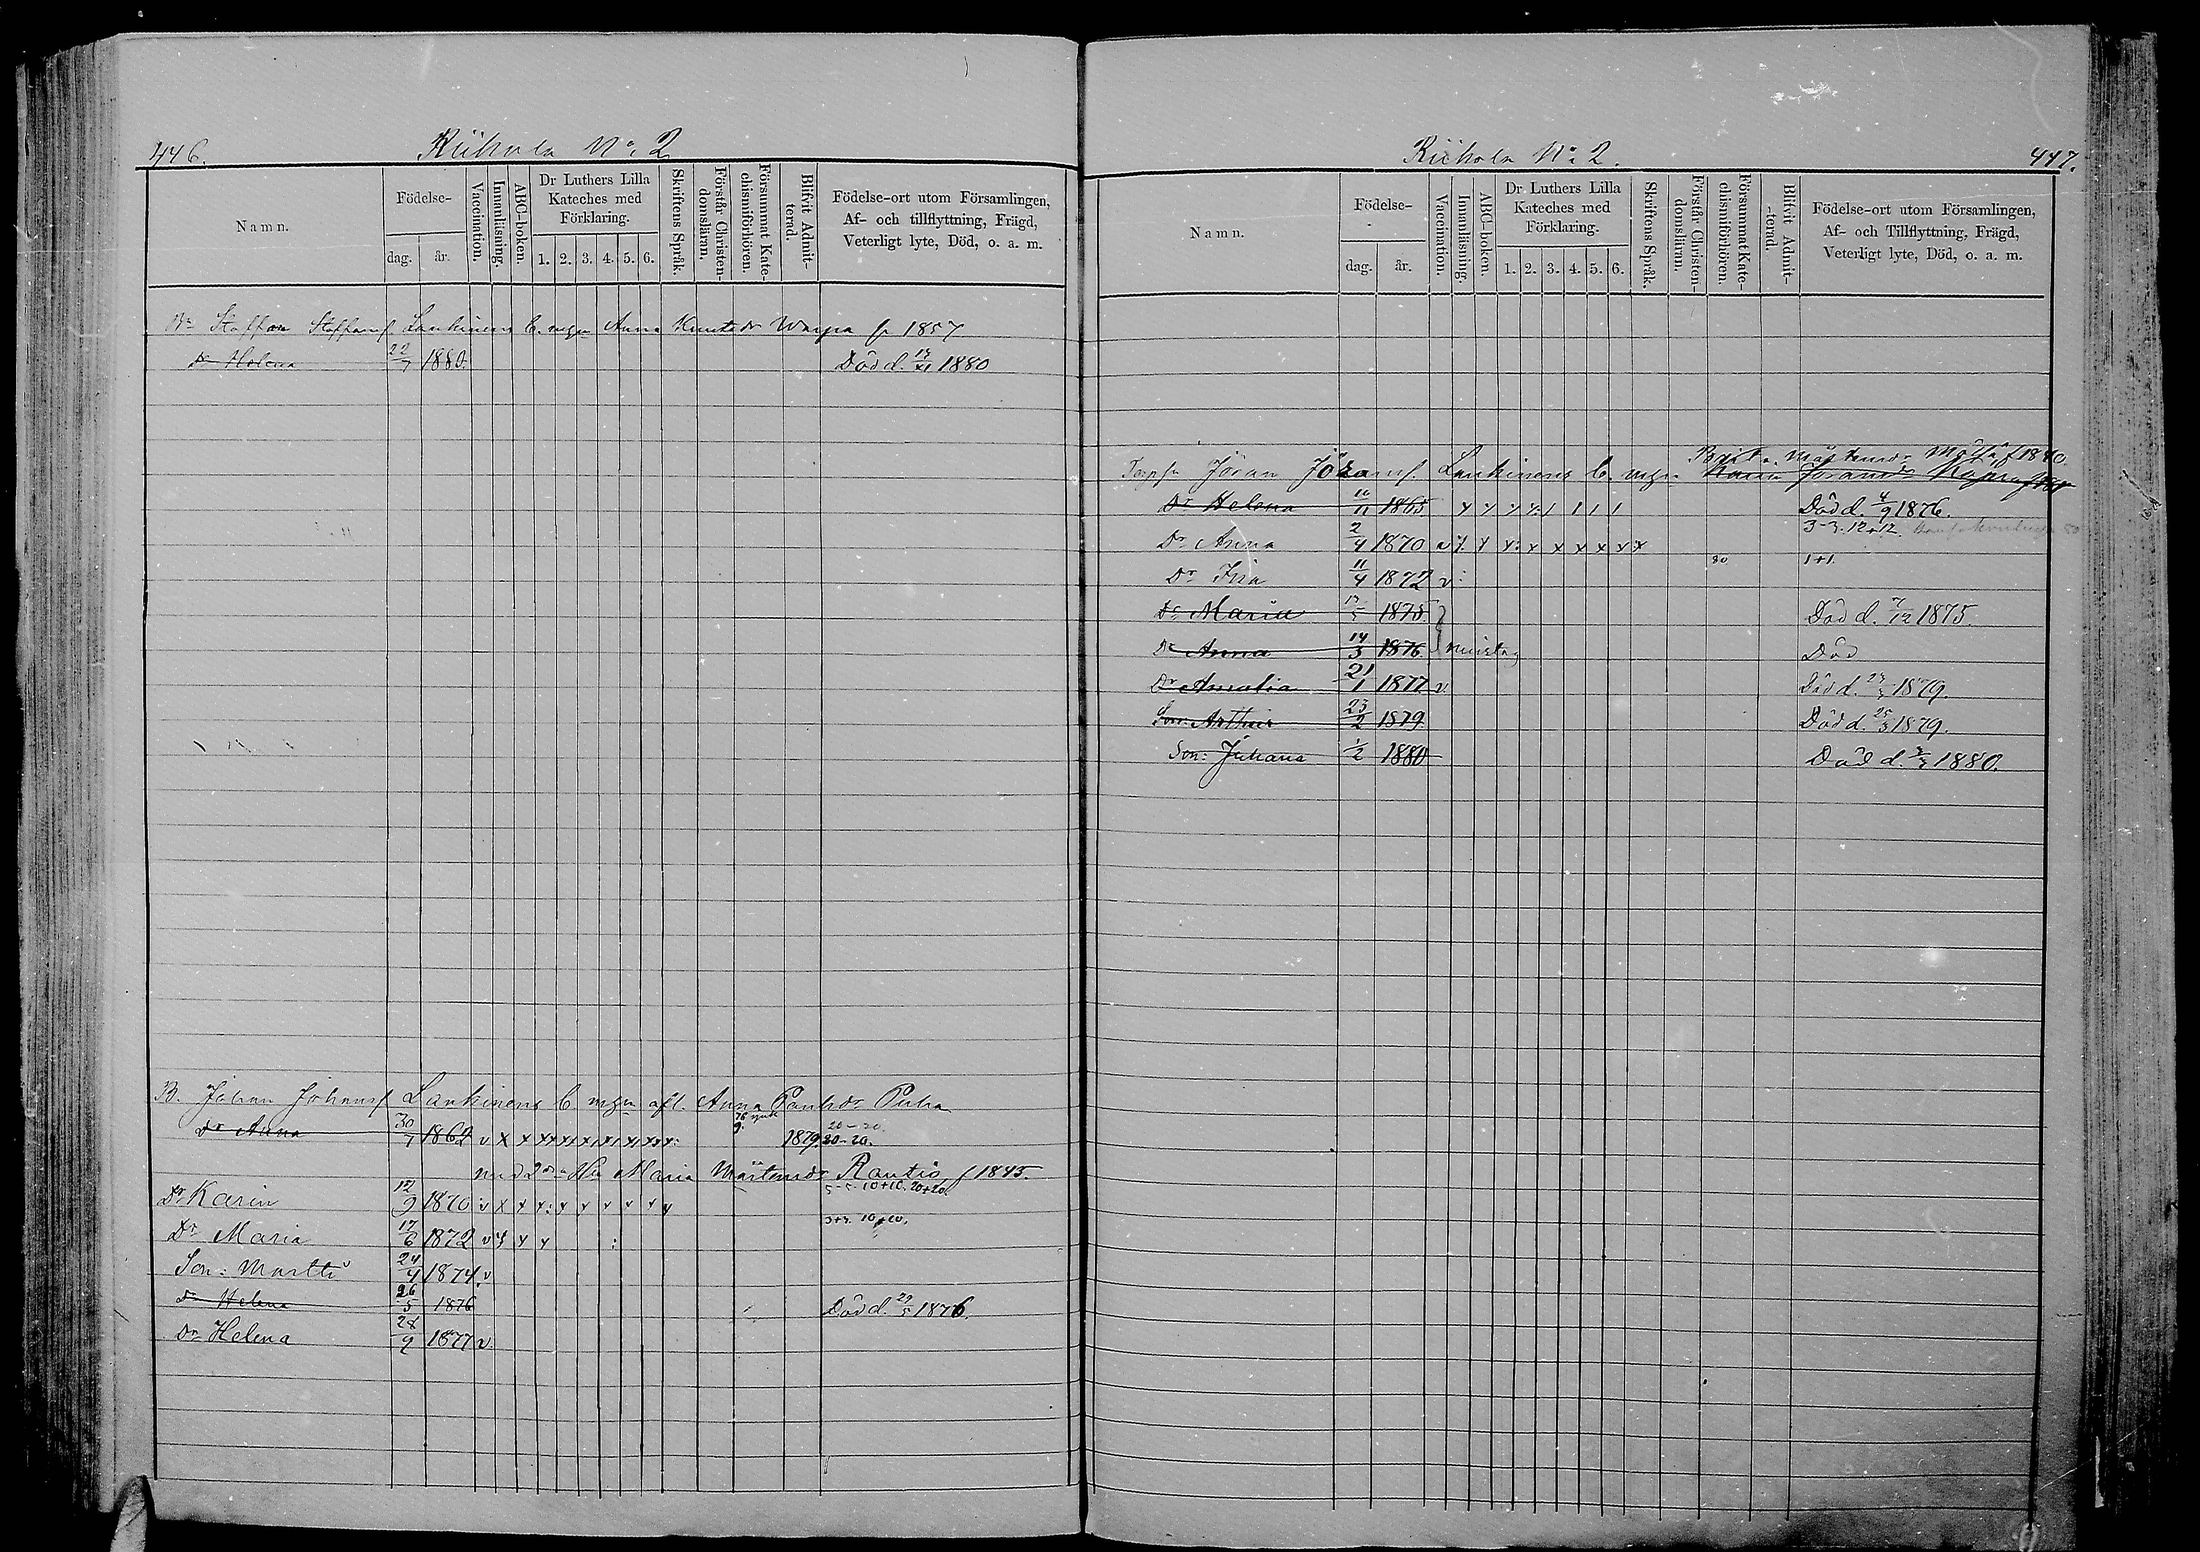 446.
Riihola No 2
Namn.
Födelse-
dag.
år.
Vaccination.
Innanläsning.
ABC-boken.
Dr Luthers Lilla Kateches med Förklaring.
1. 2. 3. 4. 5. 6.
Skriftens Språk.
Förstår Christen-domsläran.
Försummat Kate-chismiförhören.
Blifvit Admit-terad.
Födelse-ort utom Församlingen,
Af- och tillflyttning, Frägd,
Veterligt lyte, Död, o. a. m.
Staffan Staffansf Lankinens b. mgn Anna Knutsdr Warpa f. 1857
Dr Helena 22/7 1880. Död d. 1880
B. Johan Johansf Lankinens b mgn afl. Anna Paulsdr
Dr Anna 30/7 1862 v x x 1879. 20-20.
20-20.
med 2dra Maria Mårtensdr Rautio f 1845.
Dr Karin 12/9 1870 v x x x: x x x x x x 5-5. 10+10. 20+20.
Dr Maria 17/6 1872 v x x x 3+3. 10+10.
Son: Martti 24/4 1874. v
Dr Helena 26/5 1876 Död d. 29/5 1876.
Dr Helena 28/9 1877 v.
447.
Riihola No 2.
Namn.
Födelse-
dag.
år.
Vaccination.
Innanläsning.
ABC-boken.
Dr Luthers Lilla Kateches med Förklaring.
1. 2. 3. 4. 5. 6.
Skriftens Språk.
Förstår Christen-domsläran.
Försummat Kate-chismiförhören.
Blifvit Admit-terad.
Födelse-ort utom Församlingen,
Af- och Tillflyttning, Frägd,
Veterligt lyte, Död, o. a. m.
Mårtensdr f 1840.
Jöran Jöransf. Lankinens b. mgn Karin Jöransdr
Dr Helena 11/11 1865. Död d. 4/9 1876.
3-3. 12+12.
Dr Anna 2/4 1870
80 1+1.
Dr Iria 11/4 1872 v
Dr Maria 13/5 1875. Död d. 7/12 1875.
Dr Anna 14/3 1876. Död
Dr Amalia 21/1 1877 v Död d. 1879.
Son: Arthur 23/2 1879 Död d. 25/3 1879.
Son: Juhana 1/2 1880 Död d. 1880.